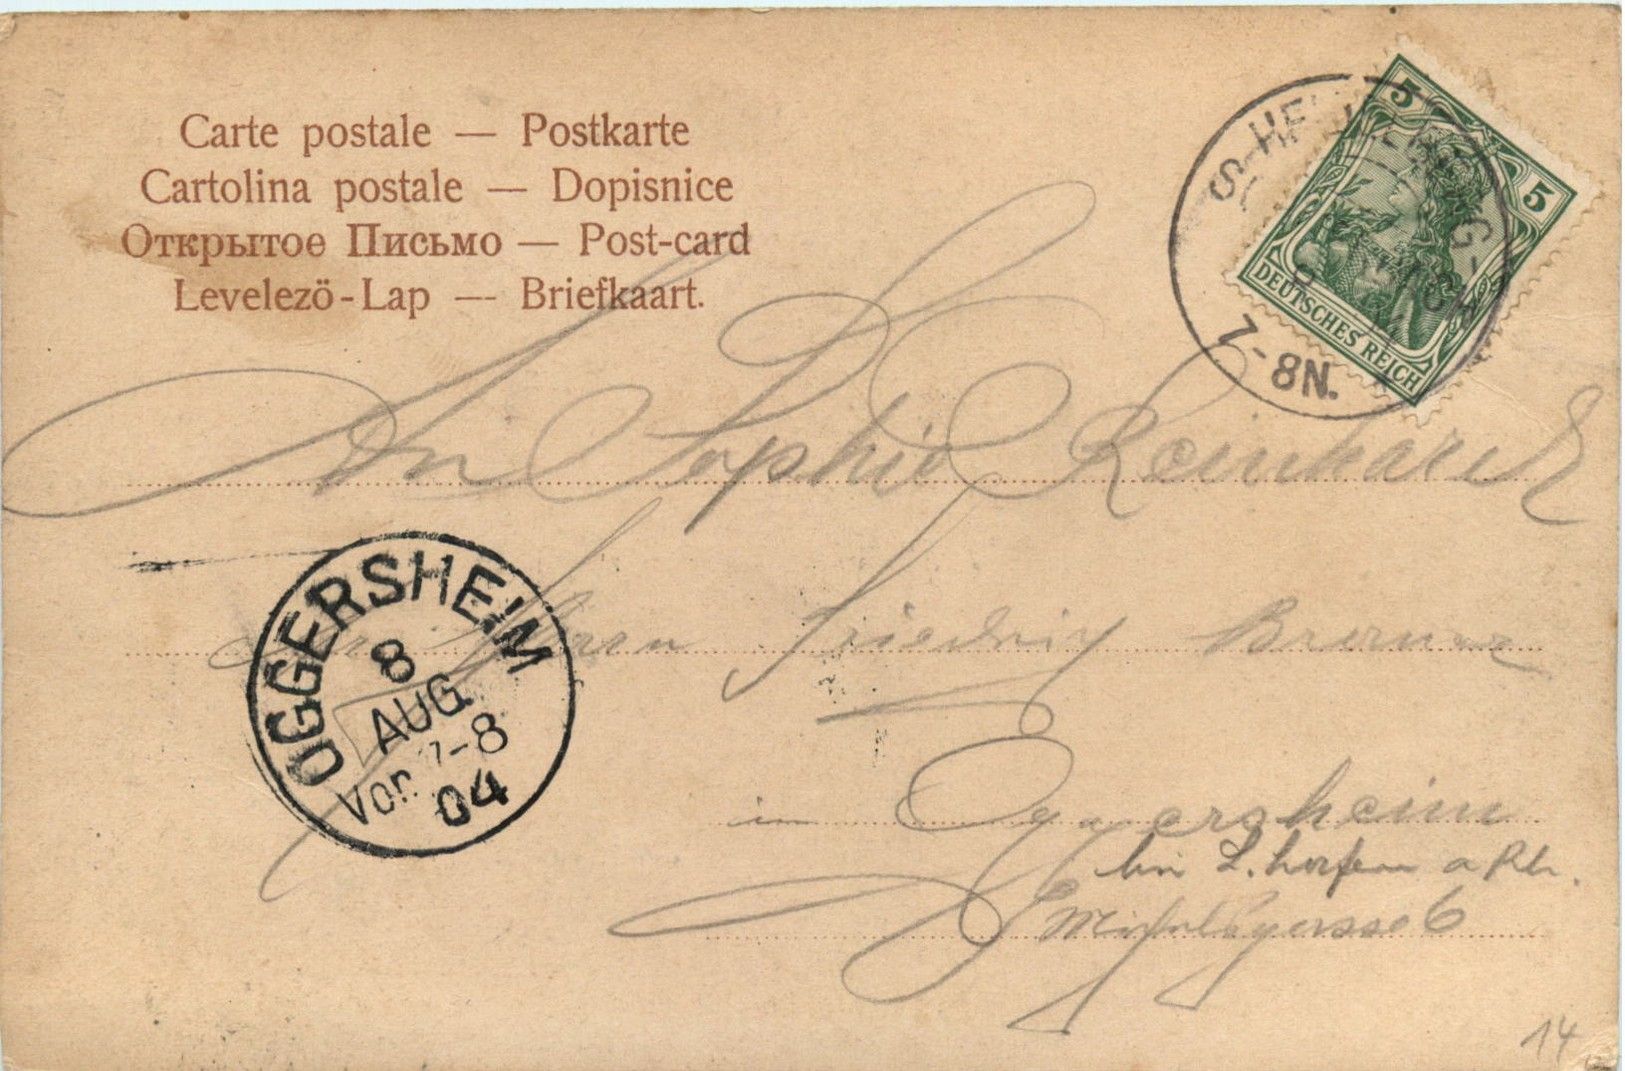 Carte postale — Postkarte
Cartolina postale — Dopisnice
Открытое Письмо — Post-card
Levelező-Lap — Briefkaart.
5 5
DEUTSCHES REICH
7-8N.
An Sophie Reinhardt
Herrn Friedrich
OGGERSHEIM
8
AUG
Vor. 7-8
04
in Oggersheim
bei L. hafen a Rh.
6
14